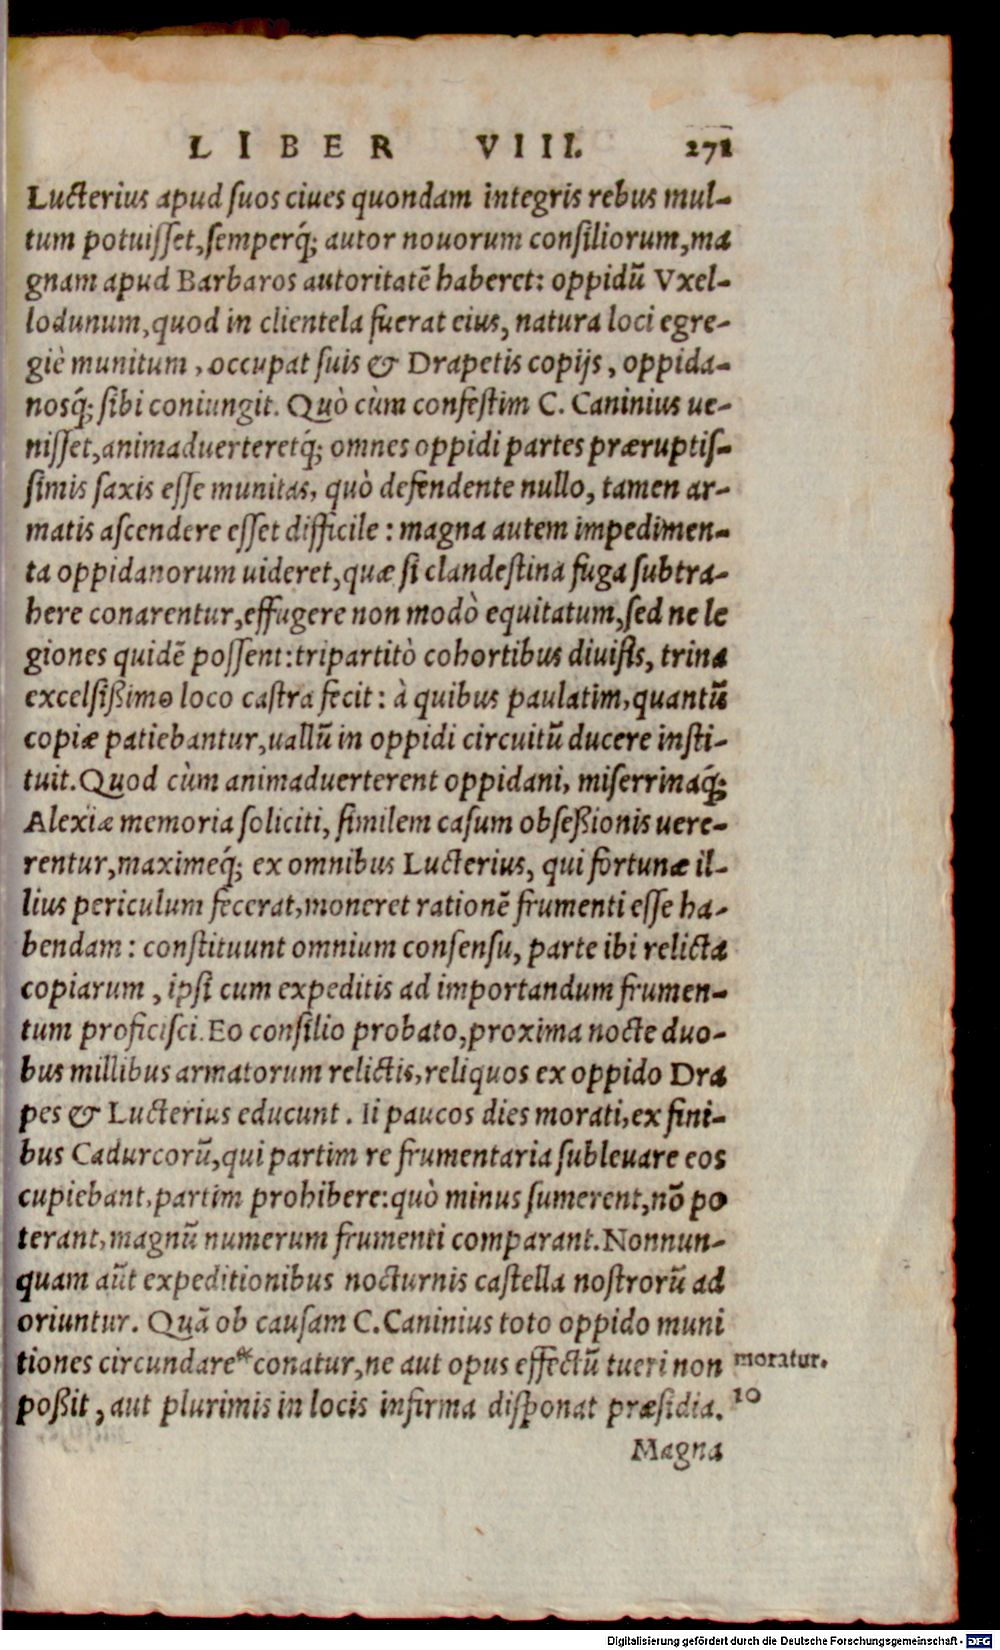 LIBER VIII. 271
Lucterius apud suos ciues quondam integris rebus mul-
tum potuisset, semperq́; autor nouorum consiliorum, ma
gnam apud Barbaros autoritatē haberet: oppidū Vxel-
lodunum, quod in clientela fuerat eius, natura loci egre-
giè munitum, occupat suis & Drapetis copijs, oppida-
nosq́; sibi coniungit. Quò cùm confestim C. Caninius ue-
nisset, animaduerteretq́; omnes oppidi partes præruptis-
simis saxis esse munitas, quò defendente nullo, tamen ar-
matis ascendere esset difficile: magna autem impedimen-
ta oppidanorum uideret, quæ si clandestina fuga subtra-
here conarentur, effugere non modò equitatum, sed ne le
giones quidē possent: tripartitò cohortibus diuisis, trina
excelsißimo loco castra fecit: à quibus paulatim, quantū
copiæ patiebantur, uallū in oppidi circuitū ducere insti-
tuit. Quod cùm animaduerterent oppidani, miserrimaq́;
Alexiæ memoria soliciti, similem casum obseßionis uere-
rentur, maximeq́; ex omnibus Lucterius, qui fortunæ il-
lius periculum fecerat, moneret rationē frumenti esse ha-
bendam: constituunt omnium consensu, parte ibi relicta
copiarum, ipsi cum expeditis ad importandum frumen-
tum proficisci. Eo consilio probato, proxima nocte duo-
bus millibus armatorum relictis, reliquos ex oppido Dra
pes & Lucterius educunt. Ii paucos dies morati, ex fini-
bus Cadurcorū, qui partim re frumentaria subleuare eos
cupiebant, partim prohibere: quò minus sumerent, nō po
terant, magnū numerum frumenti comparant. Nonnun-
quam aūt expeditionibus nocturnis castella nostrorū ad
oriuntur. Quā ob causam C. Caninius toto oppido muni
tiones circundare* conatur, ne aut opus effectū tueri non moratur.
poßit, aut plurimis in locis infirma disponat præsidia. 10
Magna
Digitalisierung gefördert durch die Deutsche Forschungsgemeinschaft - DFG